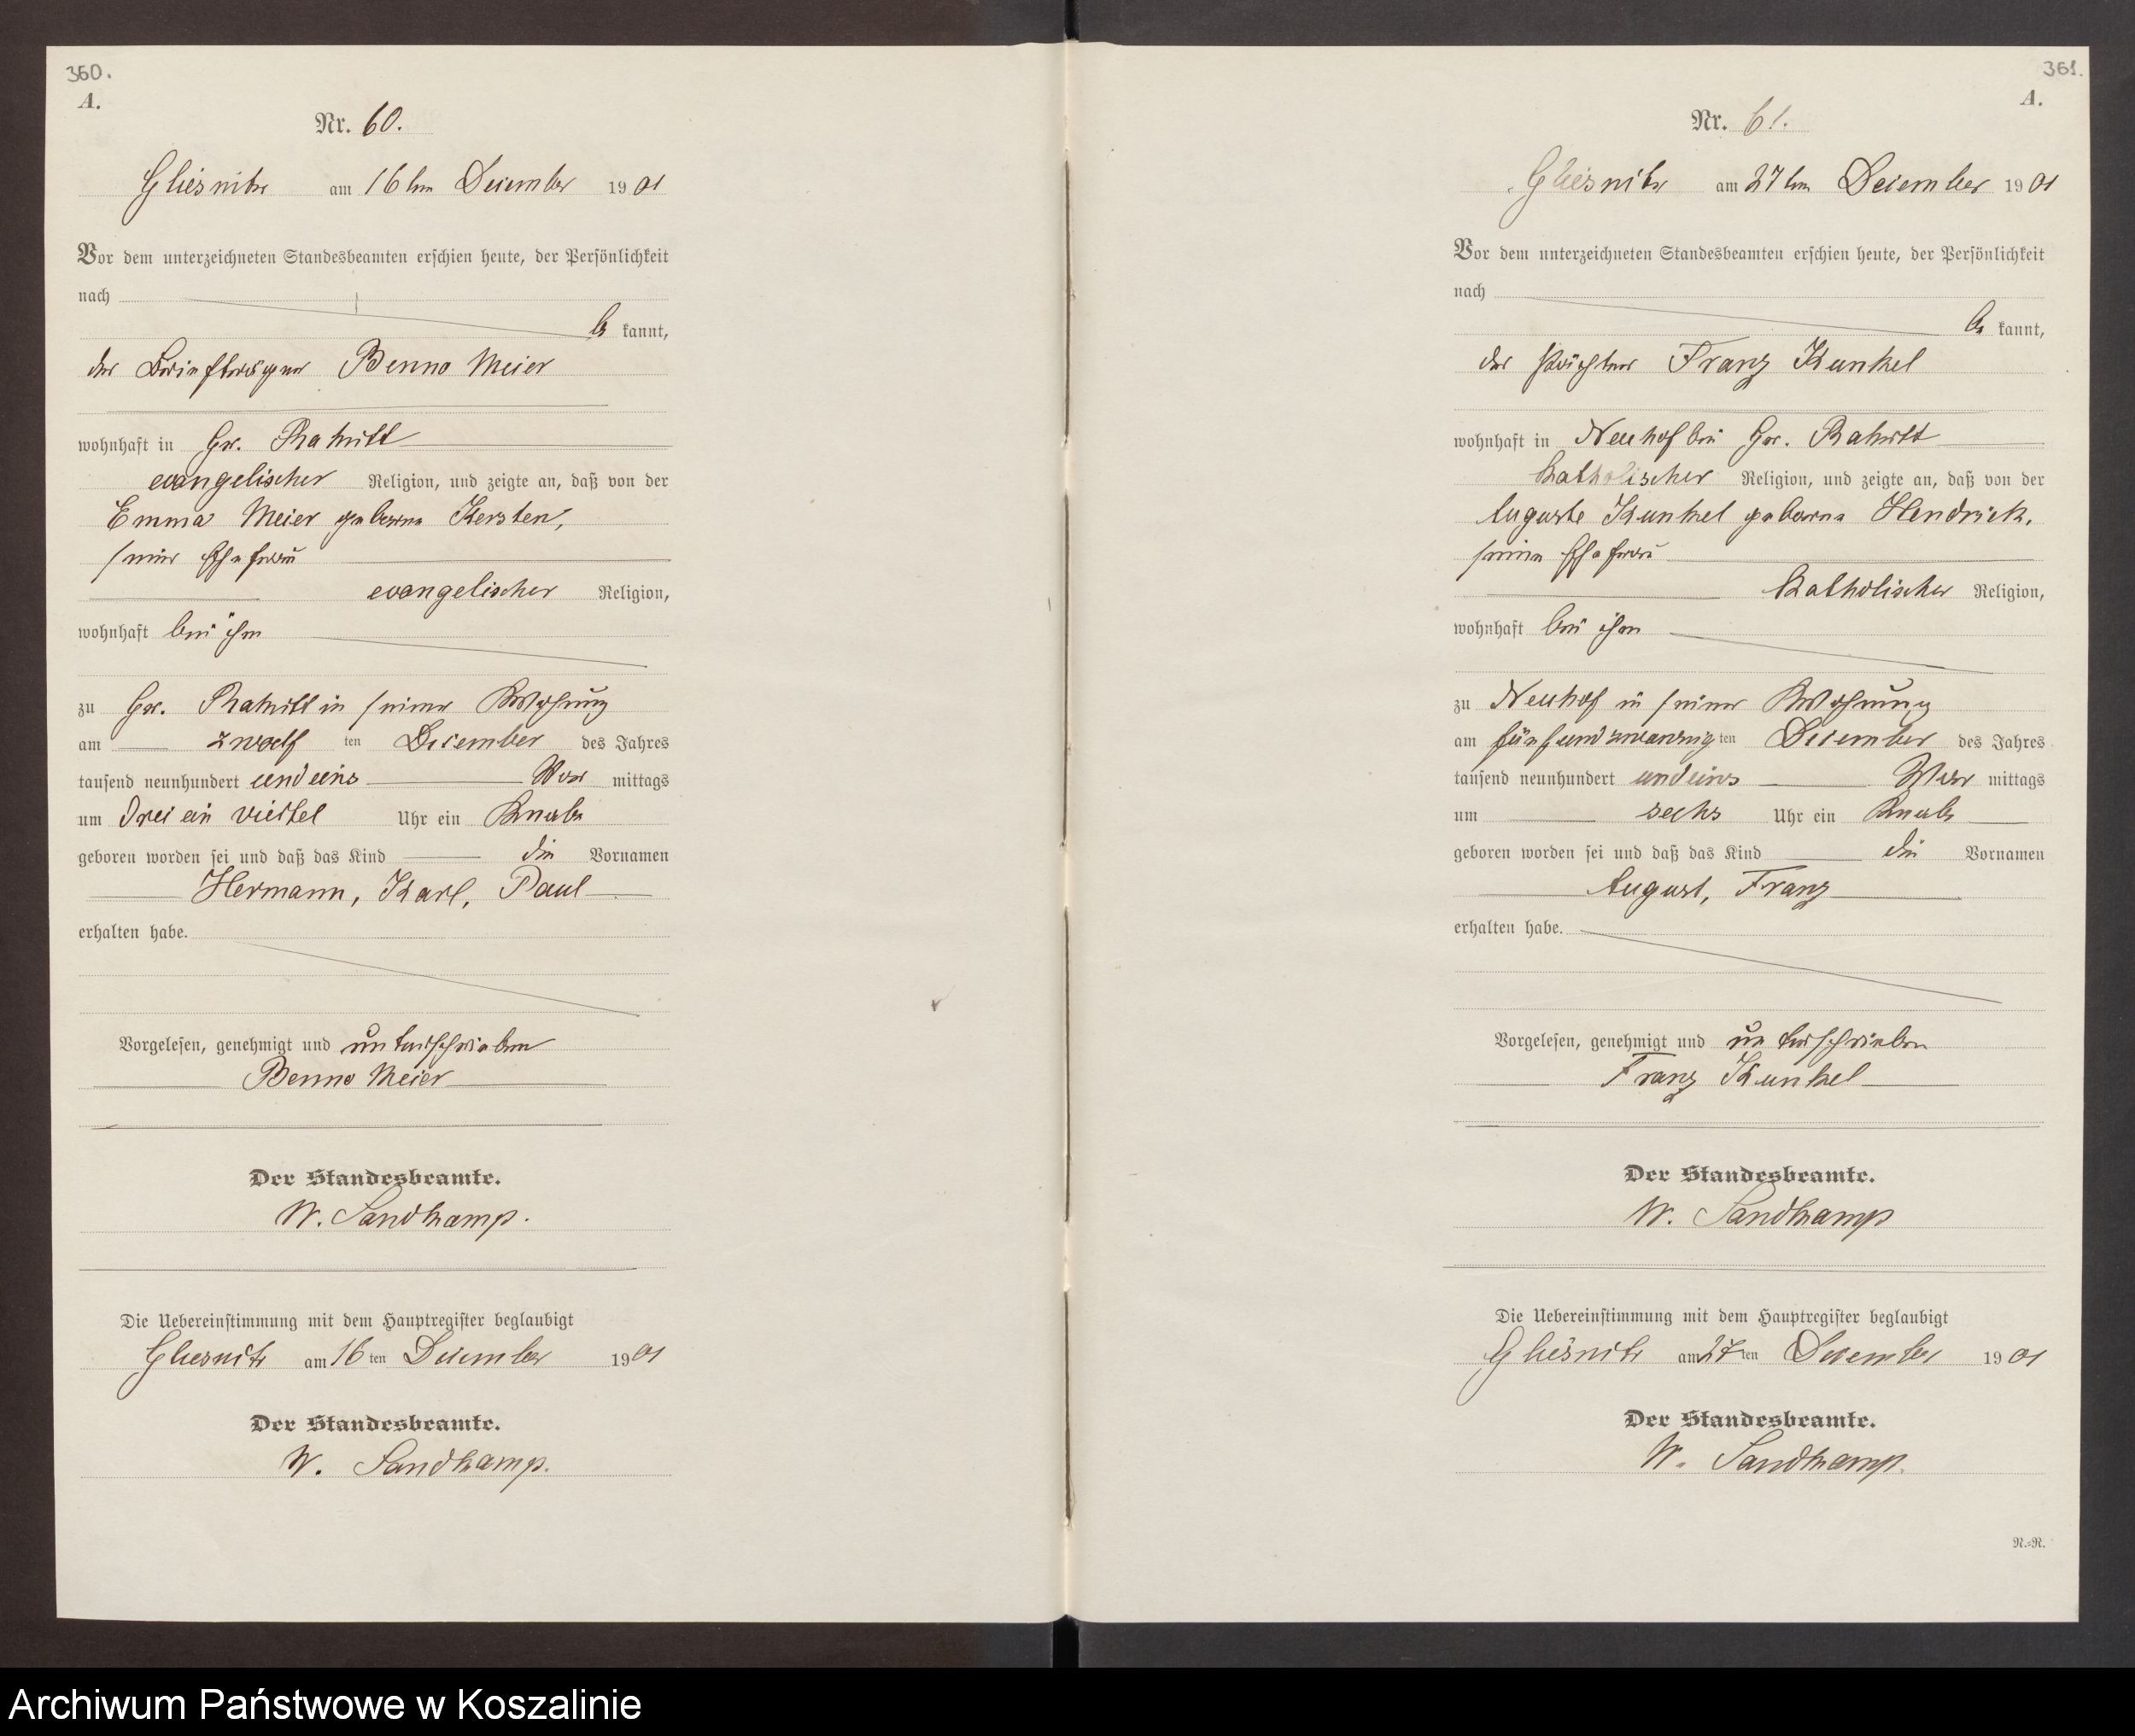 360.
A.
Nr. 60.
Gliesnitz am 16ten Dezember 1901
Vor dem unterzeichneten Standesbeamten erschien heute, der Persönlichkeit
nach
be kannt,
der Briefträger Benno Meier
wohnhaft in Gr. Rakitt
evangelischer Religion, und zeigte an, daß von der
Emma Meier geborne Kersten,
seiner Ehefrau
evangelischer Religion,
wohnhaft bei ihm
zu Gr. Rakitt in seiner Wohnung
am zwoelf ten Dezember des Jahres
tausend neunhundert und eins Vor mittags
um drei ein viertel Uhr ein Knabe
geboren worden sei und daß das Kind die Vornamen
Hermann, Karl, Paul
erhalten habe.
Vorgelesen, genehmigt und unterschrieben
Benno Meier
Der Standesbeamte.
W. Sandkamp.
Die Uebereinstimmung mit dem Hauptregister beglaubigt
Gliesnitz am 16 ten Dezember 1901
Der Standesbeamte.
W. Sandkamp.
361.
A.
Nr. 61.
Gliesnitz am 27ten Dezember 1901
Vor dem unterzeichneten Standesbeamten erschien heute, der Persönlichkeit
nach
be kannt,
der Pächter Franz Kunkel
wohnhaft in Neuhof bei Gr. Rakitt
katholischer Religion, und zeigte an, daß von der
Auguste Kunkel geborne Hendrick,
seine Ehefrau
katholischer Religion,
wohnhaft bei ihm
zu Neuhof in seiner Wohnung
am fünfundzwanzig ten Dezember des Jahres
tausend neunhundert und eins Vor mittags
um sechs Uhr ein Knabe
geboren worden sei und daß das Kind die Vornamen
August, Franz
erhalten habe.
Vorgelesen, genehmigt und unterschrieben
Franz Kunkel
Der Standesbeamte.
W. Sandkamp
Die Uebereinstimmung mit dem Hauptregister beglaubigt
Gliesnitz am 27 ten Dezember 1901
Der Standesbeamte.
W. Sandkamp.
N.=N.
Archiwum Państwowe w Koszalinie